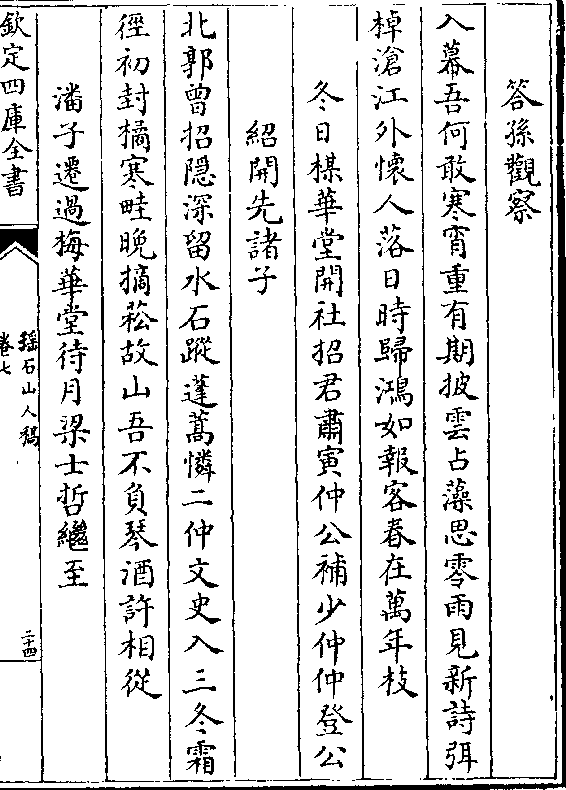 答孫觀察
入幕吾何敢寒宵重有期披雲占藻思零雨見新詩弭
棹滄江外懷人落日時歸鴻如報客春在萬年枝
冬日楳華堂開社招君肅寅仲公補少仲仲登公
紹開先諸子
北郭曾招隱深留水石蹤蓬蒿憐二仲文史入三冬霜
徑初封橘寒畦晚摘菘故山吾不負琴酒許相從
潘子遷過梅華堂待月梁士哲繼至
欽定四庫全書
瑤石山人稿
卷七
二十四